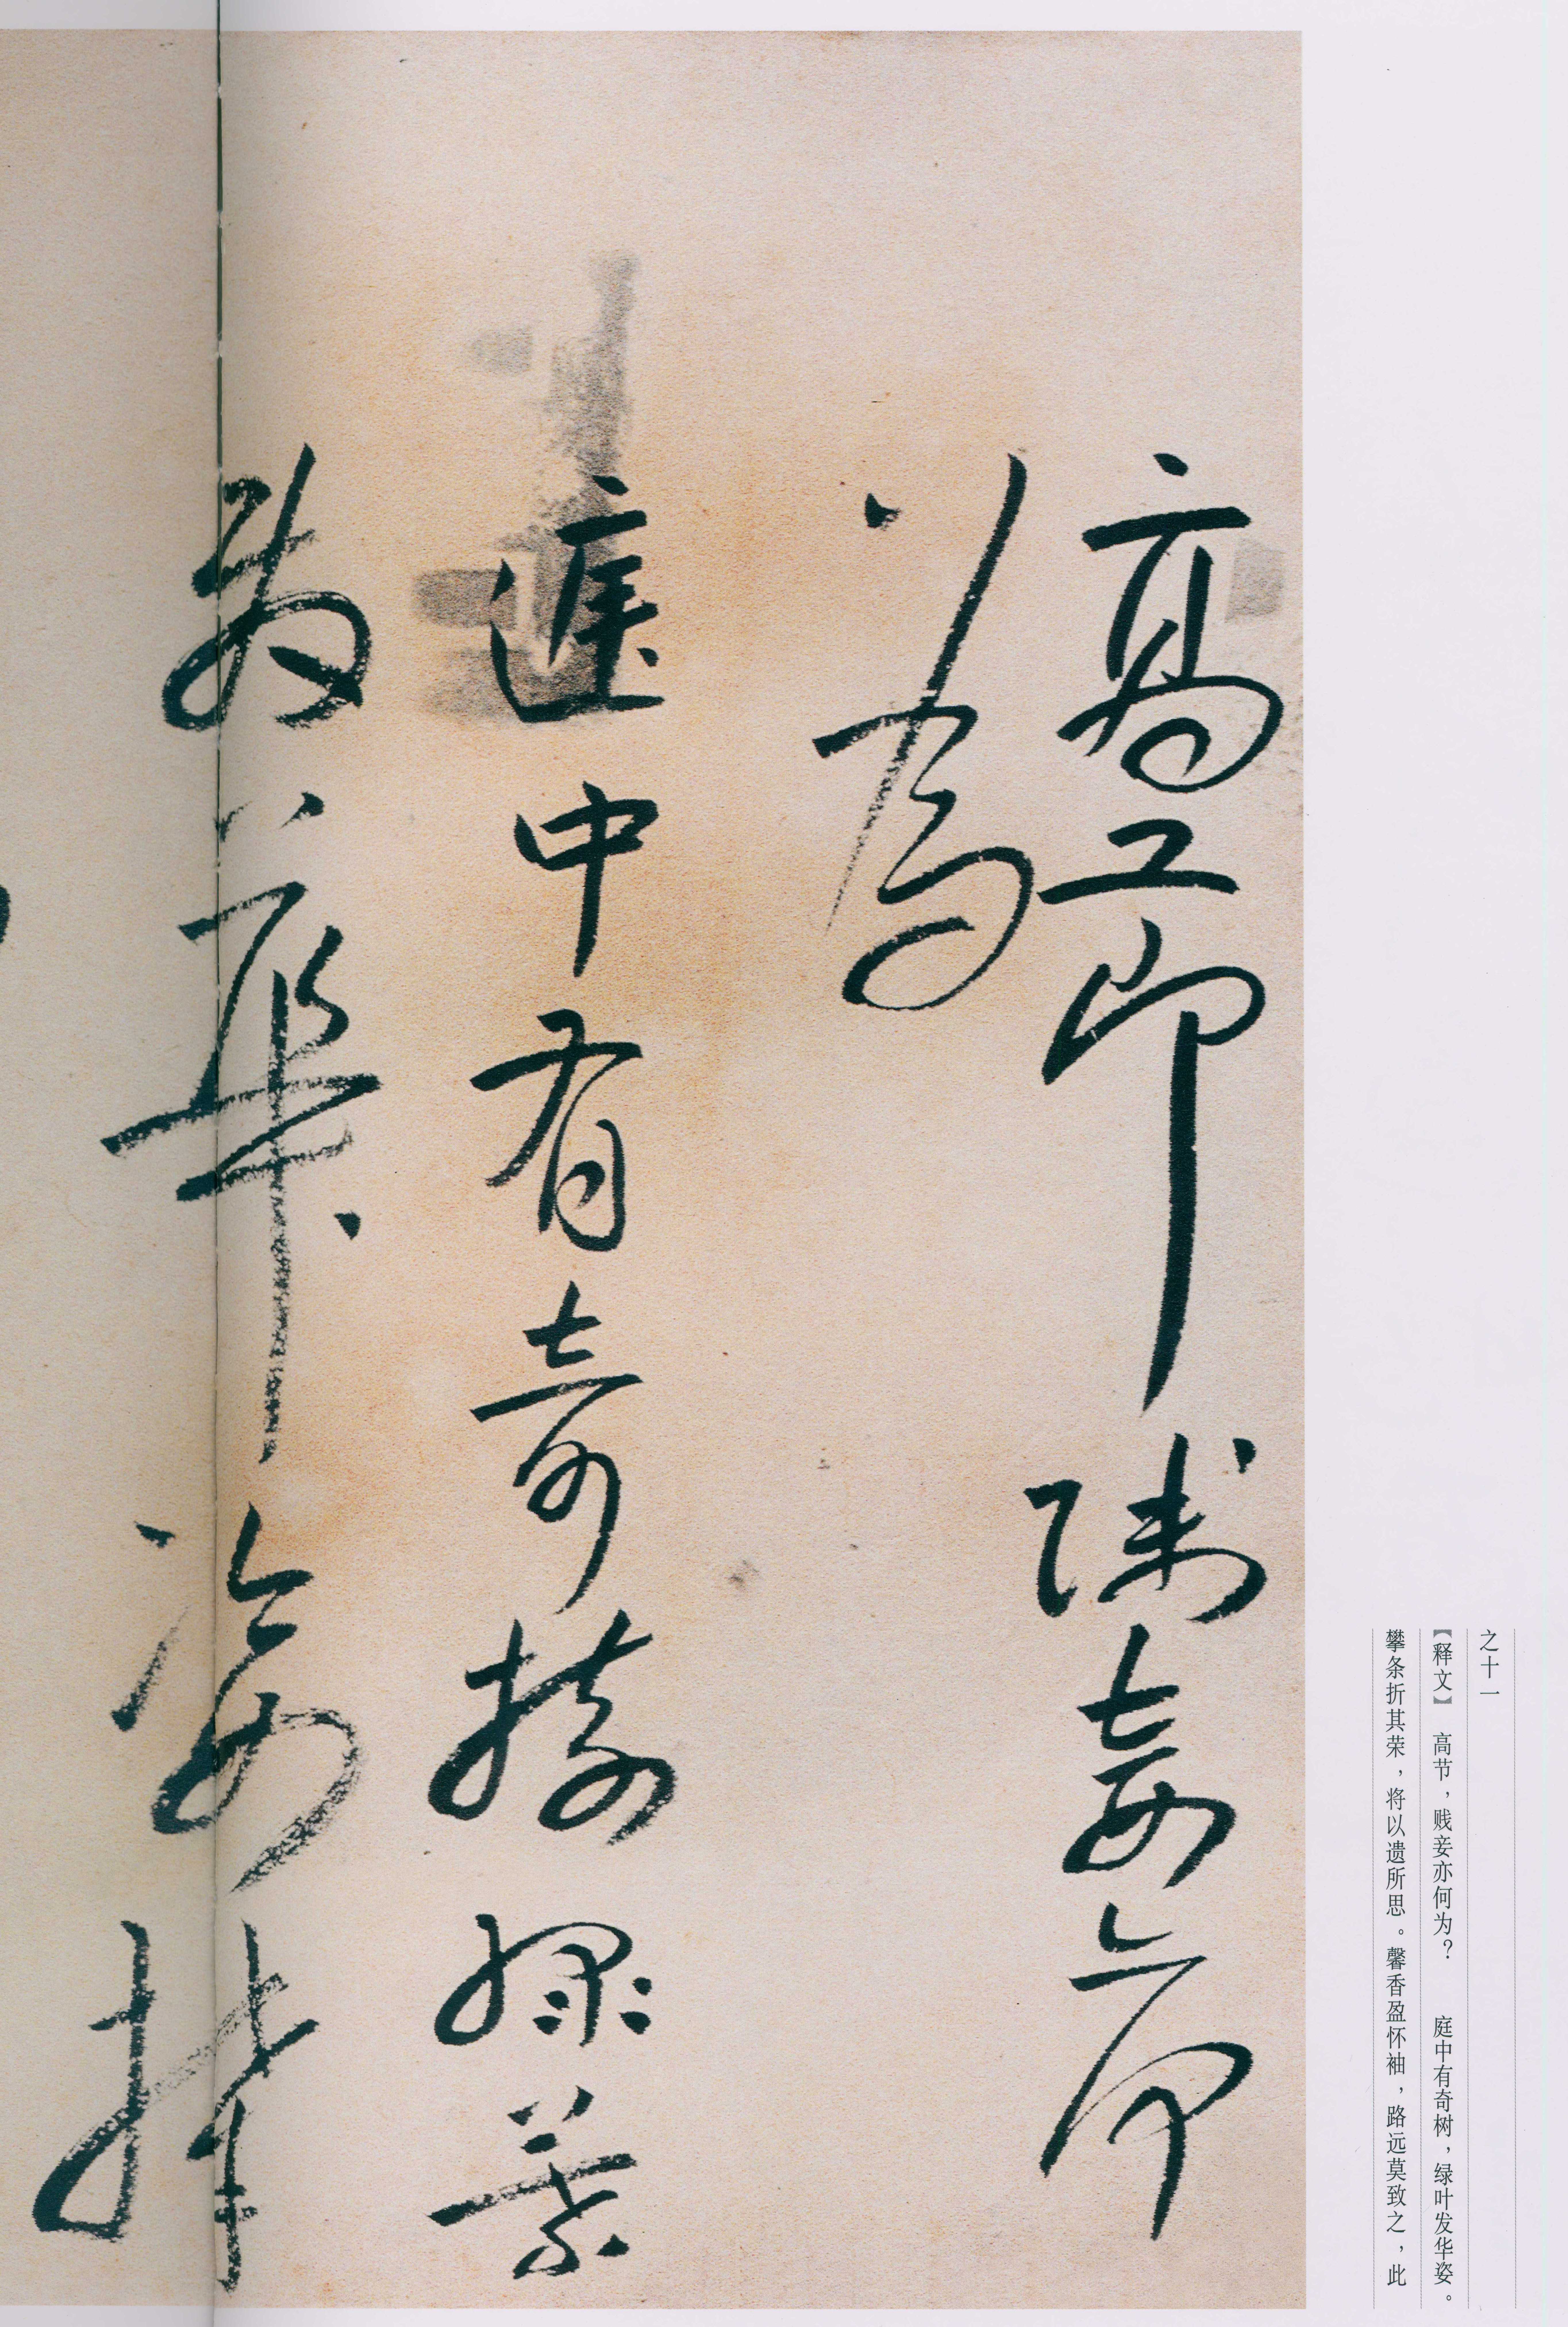 之十一
【释文】　高节，贱妾亦何为？　庭中有奇树，绿叶发华姿。
攀条折其荣，将以遗所思。馨香盈怀袖，路远莫致之，此
高节贱妾亦何
以为
庭中有奇树绿叶
发华姿攀